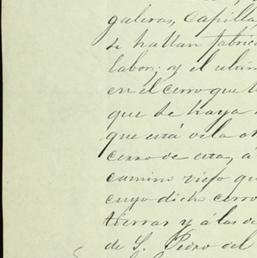 galeras, capilla
se hallan fabrica
labor; y el ultim
en el cerro que l
que se haya a
que está
cerro de esta, á
camino viejo que
cuyo dicho cerro
tierras y á las de
de S. Pedro del